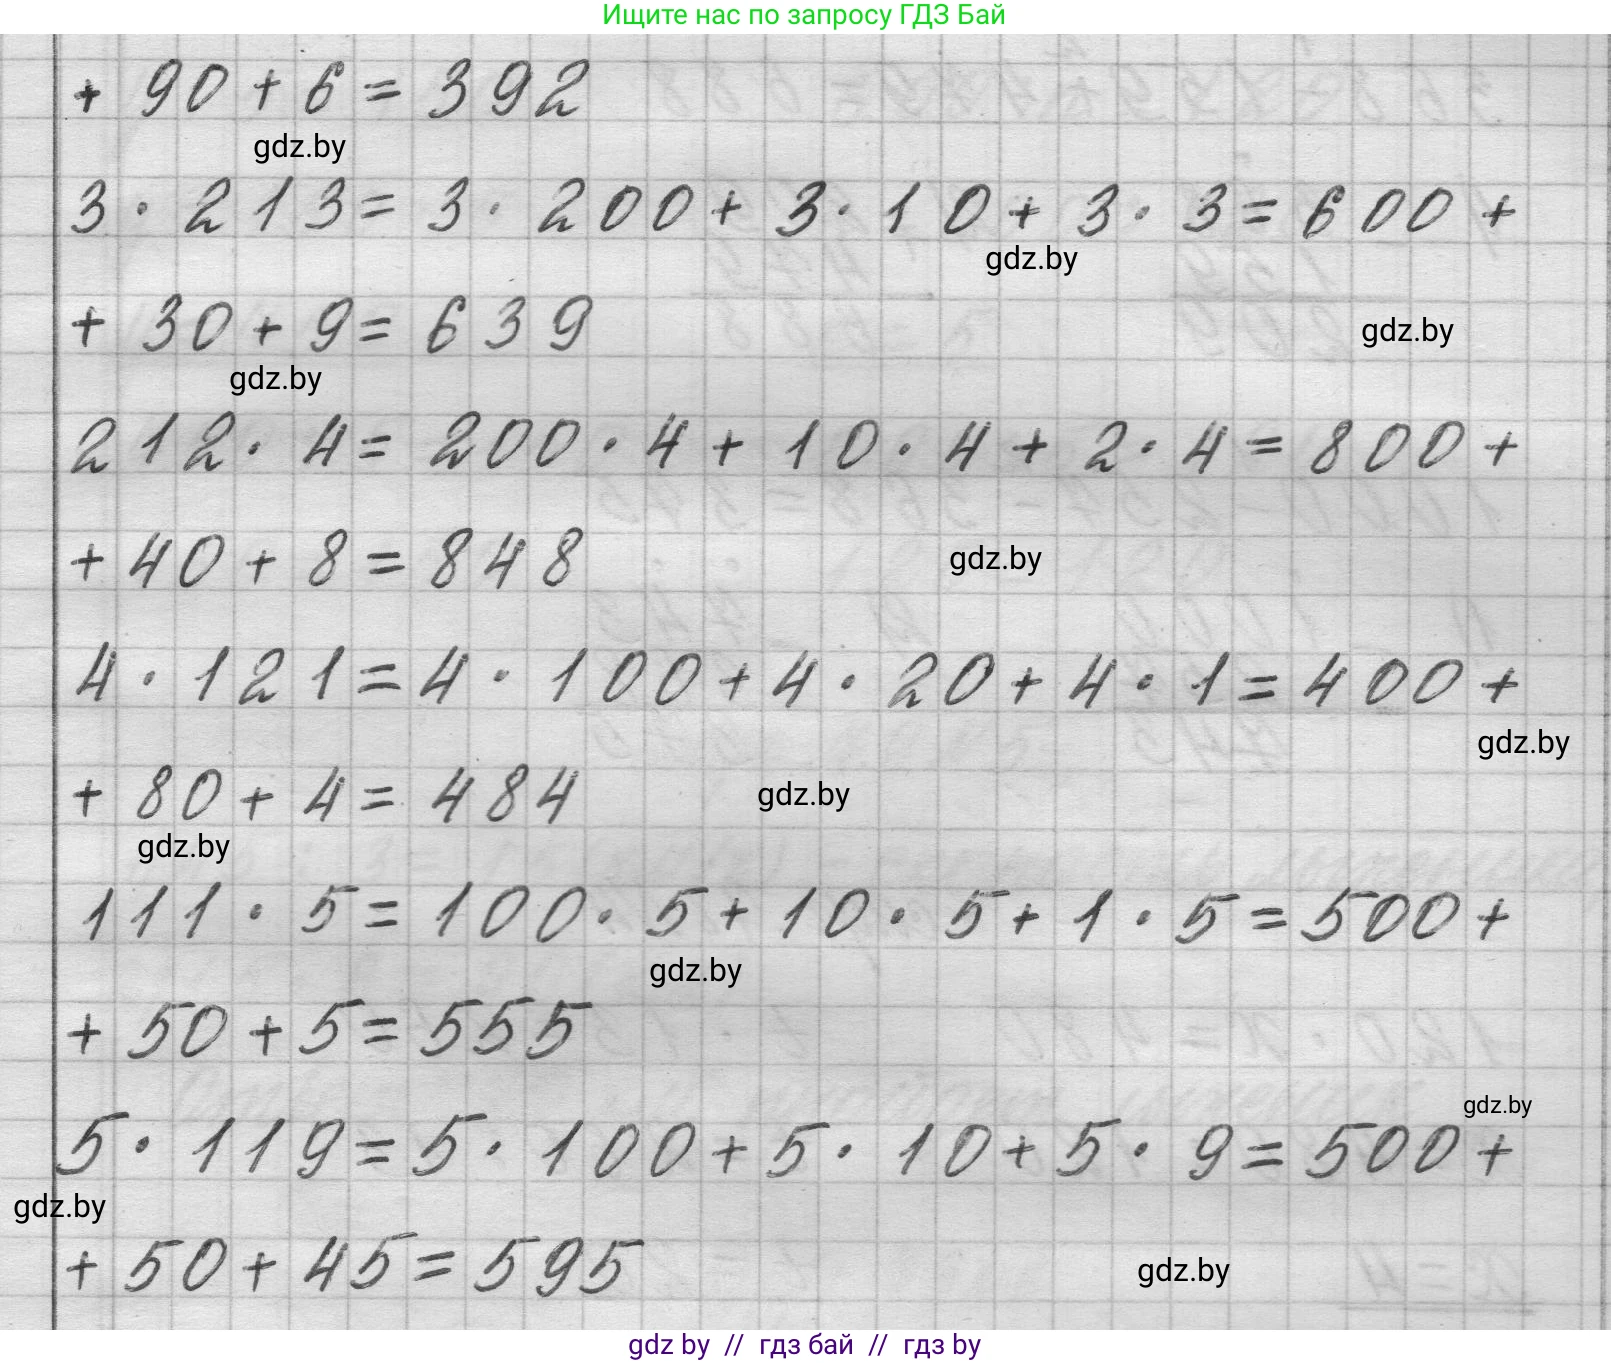 Ищите нас по запросу ГДЗ Бай
+ 90 + 6 = 392
gdz.by
3 · 213 = 3 · 200 + 3 · 10 + 3 · 3 = 600 +
gdz.by
+ 30 + 9 = 639
gdz.by
gdz.by
212 · 4 = 200 · 4 + 10 · 4 + 2 · 4 = 800 +
+ 40 + 8 = 848
gdz.by
4 · 121 = 4 · 100 + 4 · 20 + 4 · 1 = 400 +
gdz.by
+ 80 + 4 = 484
gdz.by
gdz.by
111 · 5 = 100 · 5 + 10 · 5 + 1 · 5 = 500 +
gdz.by
+ 50 + 5 = 555
gdz.by
5 · 119 = 5 · 100 + 5 · 10 + 5 · 9 = 500 +
gdz.by
+ 50 + 45 = 595
gdz.by
gdz by // гдз бай // гдз by